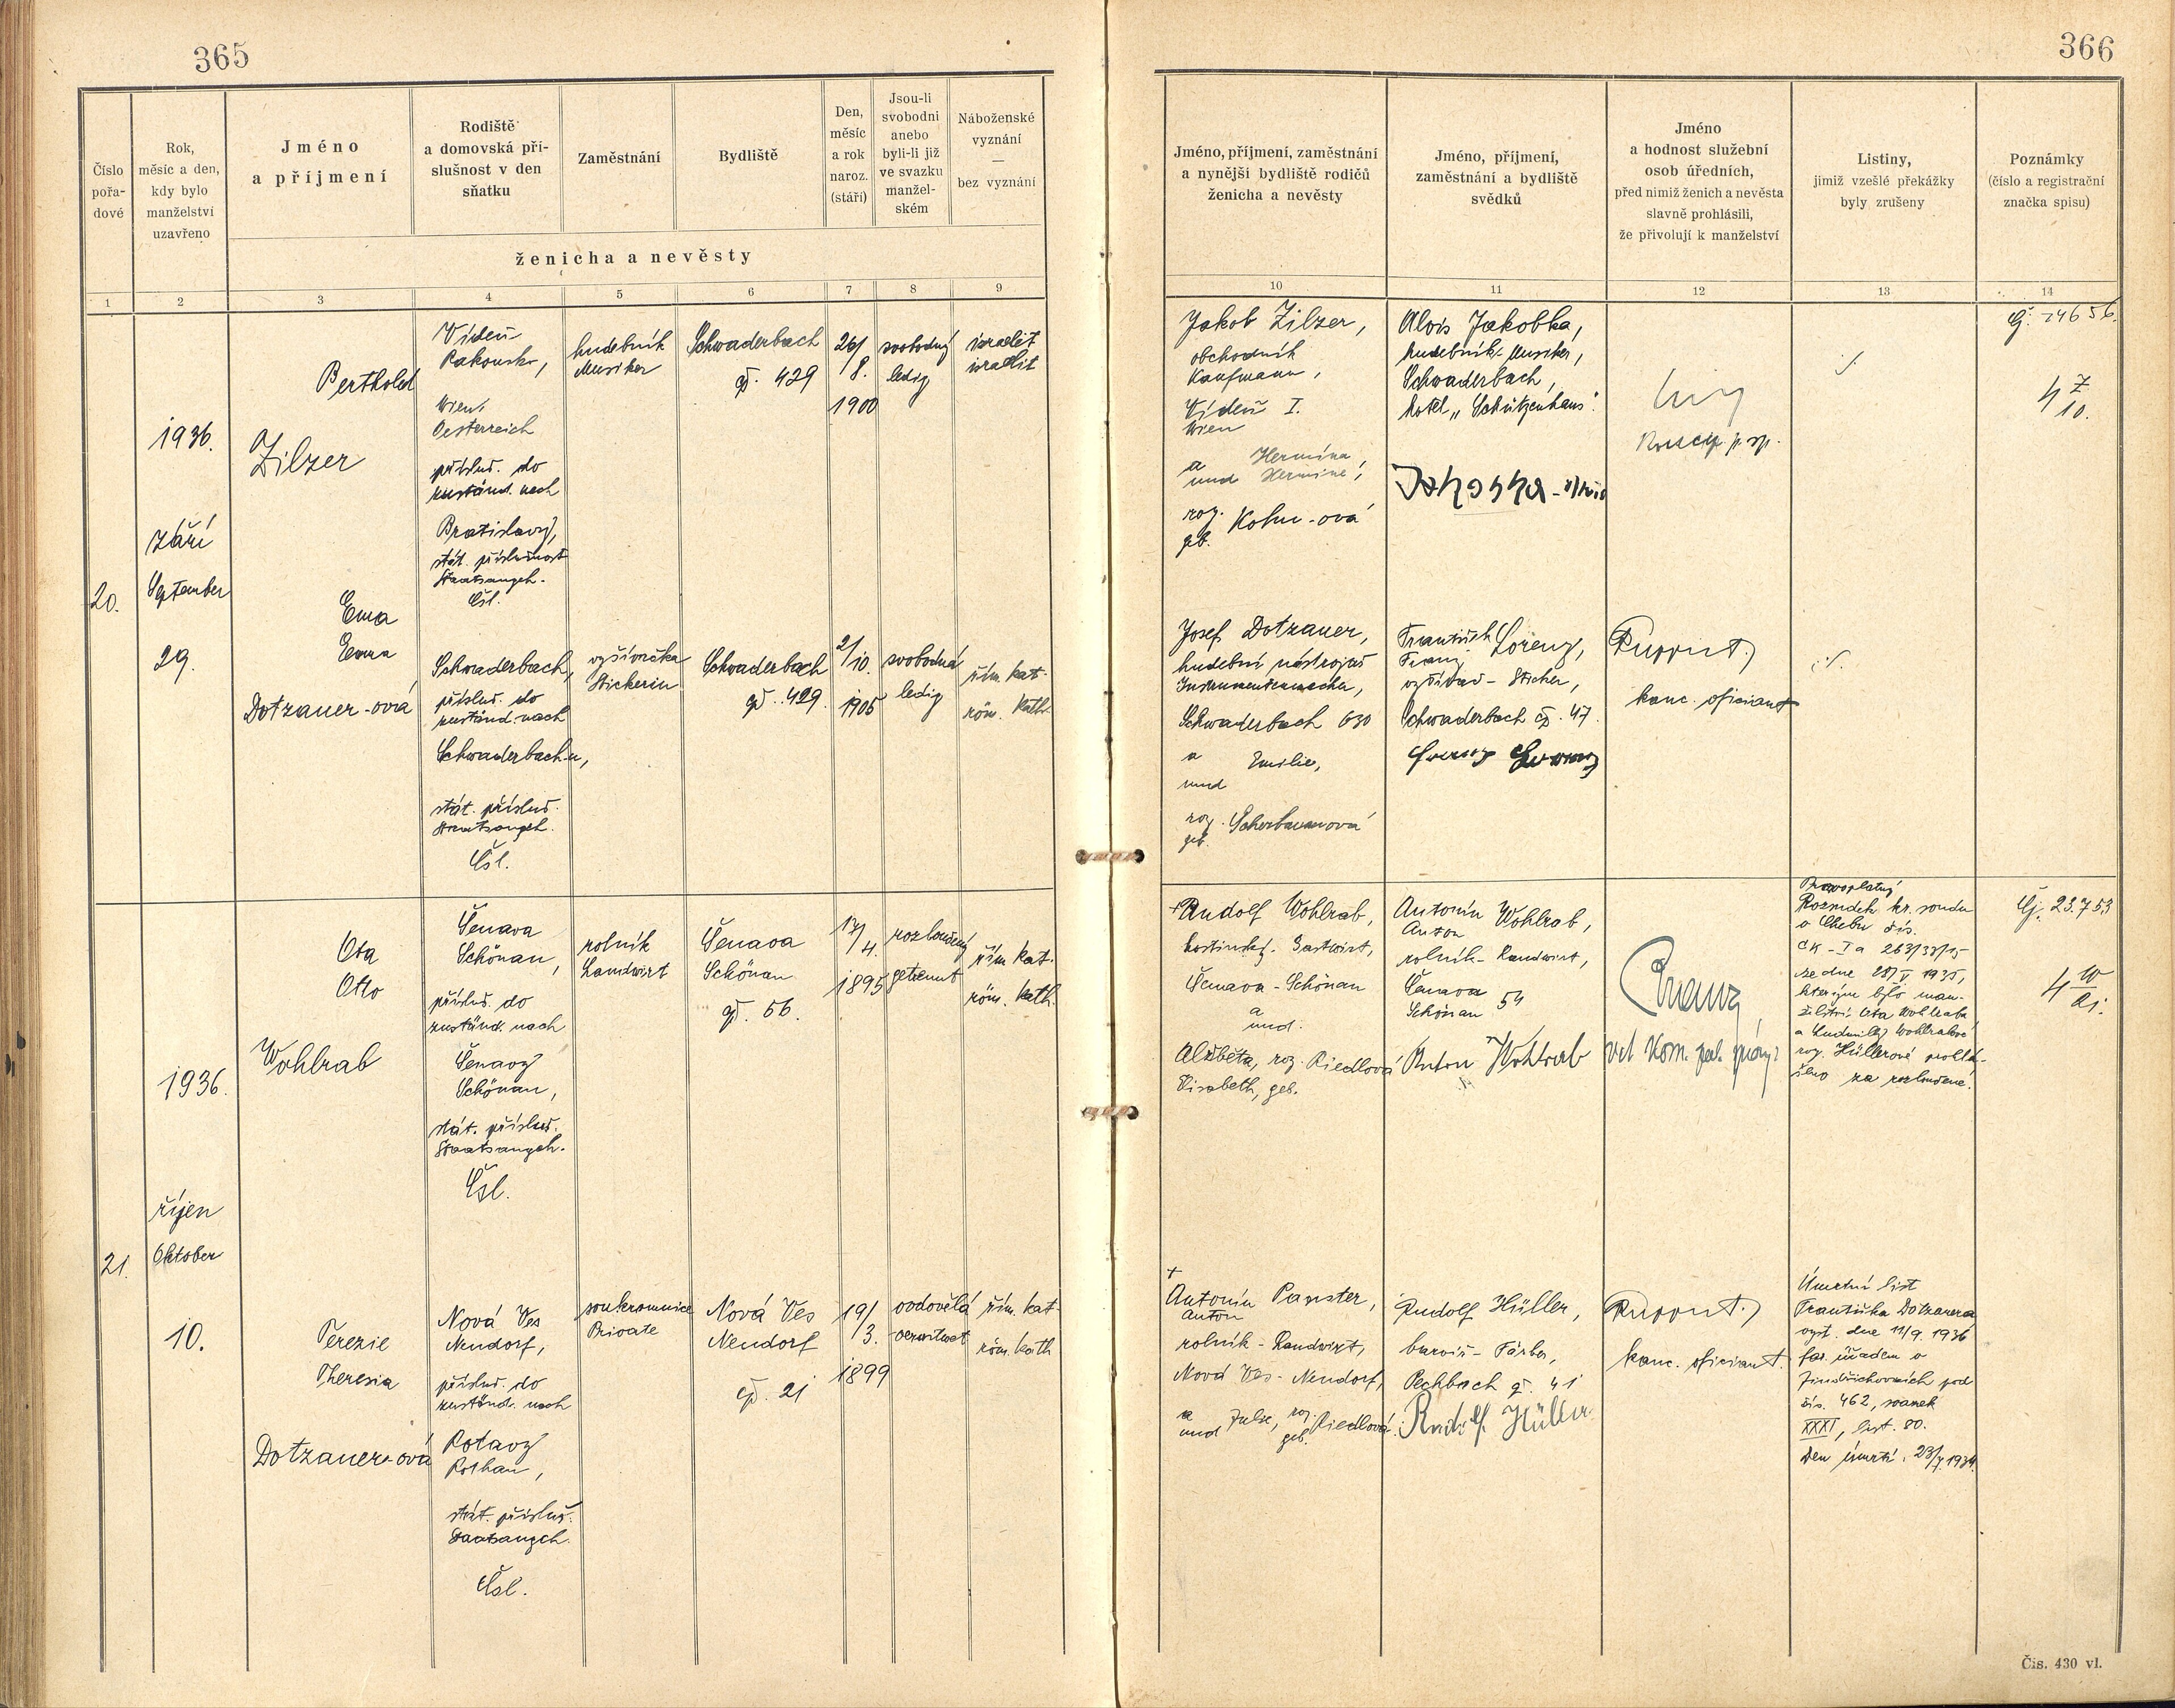 365
366
Číslo
pořa-
dové
Rok,
měsíc a den,
kdy bylo
manželství
uzavřeno
Jméno
a příjmení
Rodiště
a domovská pří-
slušnost v den
sňatku
Zaměstnání
Bydliště
Den,
měsíc
a rok
naroz.
(stáří)
Jsou-li
svobodni
anebo
byli-li již
ve svazku
manžel-
ském
Náboženské
vyznání
—
bez vyznání
ženicha a nevěsty
Jméno, příjmení, zaměstnání
a nynější bydliště rodičů
ženicha a nevěsty
Jméno, příjmení,
zaměstnání a bydliště
svědků
Jméno
a hodnost služební
osob úředních,
před nimiž ženich a nevěsta
slavně prohlásili,
že přivolují k manželství
Listiny,
jimiž vzešlé překážky
byly zrušeny
Poznámky
(číslo a registrační
značka spisu)
1 2 3 4 5 6 7 8 9
10 11 12 13 14
20.
1936.
září
September
29.
Berthold
Zilzer
Vídeň
Rakousko,
Wien,
Oesterreich
přísluš. do
zuständ. nach
Bratislavy,
stát. příslušnost
Staatsangeh.
Čsl.
hudebník
Musiker
Schwaderbach
čp. 429
26/
8.
1900
svobodný
ledig
izraelit
israelit
Jakob Zilzer,
obchodník
Kaufmann,
Vídeň I.
Wien
a Hermína,
und Hermine,
roz.
geb. Kohn-ová
Alois Jakobka,
hudebník-Musiker,
Schwaderbach,
hotel „Schützenhaus".
./.
Čj. 24656.
4 Z
10.
Ema
Emma
Dotzauer-ová
Schwaderbach,
přísluš. do
zuständ. nach
Schwaderbach-u,
stát. přísluš.
Staatsangeh.
Čsl.
vyšívačka
Stickerin
Schwaderbach
čp. 429.
2/10.
1905
svobodná
ledig
řím. kat.
röm. kath.
Josef Dotzauer,
hudební nástrojař
Instrumentenmacher,
Schwaderbach 630
a Emilie,
und
roz.
geb. Scherbaumová
František Lorenz,
Franz
vyšívač - Sticker,
Schwaderbach čp. 47.
Ruppert
kanc. oficiant
./.
21.
1936.
říjen
Oktober
10.
Ota
Otto
Wohlrab
Šenava
Schönau,
přísluš. do
zuständ. nach
Šenavy
Schönau,
stát. přísluš.
Staatsangeh.
Čsl.
rolník
Landwirt
Šenava
Schönau
čp. 56.
17/
4.
1895
rozloučený
getrennt
řím. kat.
röm. kath.
+Rudolf Wohlrab,
hostinský - Gastwirt,
Šenava - Schönau
a
und.
Alžběta, roz. Riedlová
Elisabeth, geb.
Antonín Wohlrab,
Anton
rolník - Landwirt,
Šenava
Schönau 54
Anton Wohlrab
Pravoplatný
Rozsudek kr. soudu
v Chebu čís.
Ck - Ia 263/33/15
ze dne 28/V 1935,
kterým bylo man-
želství Ota Wohlraba
a Ludmily Wohlrabové
roz. Hüllerové prohlá-
šeno za rozloučené.
Čj. 23.753
4 W
21.
Terezie
Theresia
Dotzauer-ová
Nová Ves
Neudorf,
přísluš. do
zuständ. nach
Rotavy
Rothau,
stát. přísluš.
Staatsangeh.
Čsl.
soukromnice
Private
Nová Ves
Neudorf
čp. 21
19/
3.
1899
ovdovělá
verwitwet
řím. kat.
röm. kath
+
Antonín Panster,
Anton
rolník - Landwirt,
Nová Ves - Neudorf,
a Julie, roz. Riedlová.
und geb.
Rudolf Hüller,
barvíř - Färber,
Pechbach čp. 41
Rudolf Hüller
Ruppert
kanc. oficiant.
Úmrtní list
Františka Dotzauera
vyst. dne 11/9. 1936
far. úřadem v
Jindřichovicích pod
čís. 462, svazek
XXXI, list. 80.
Den úmrtí: 23/7.1934.
Čís. 430 vl.